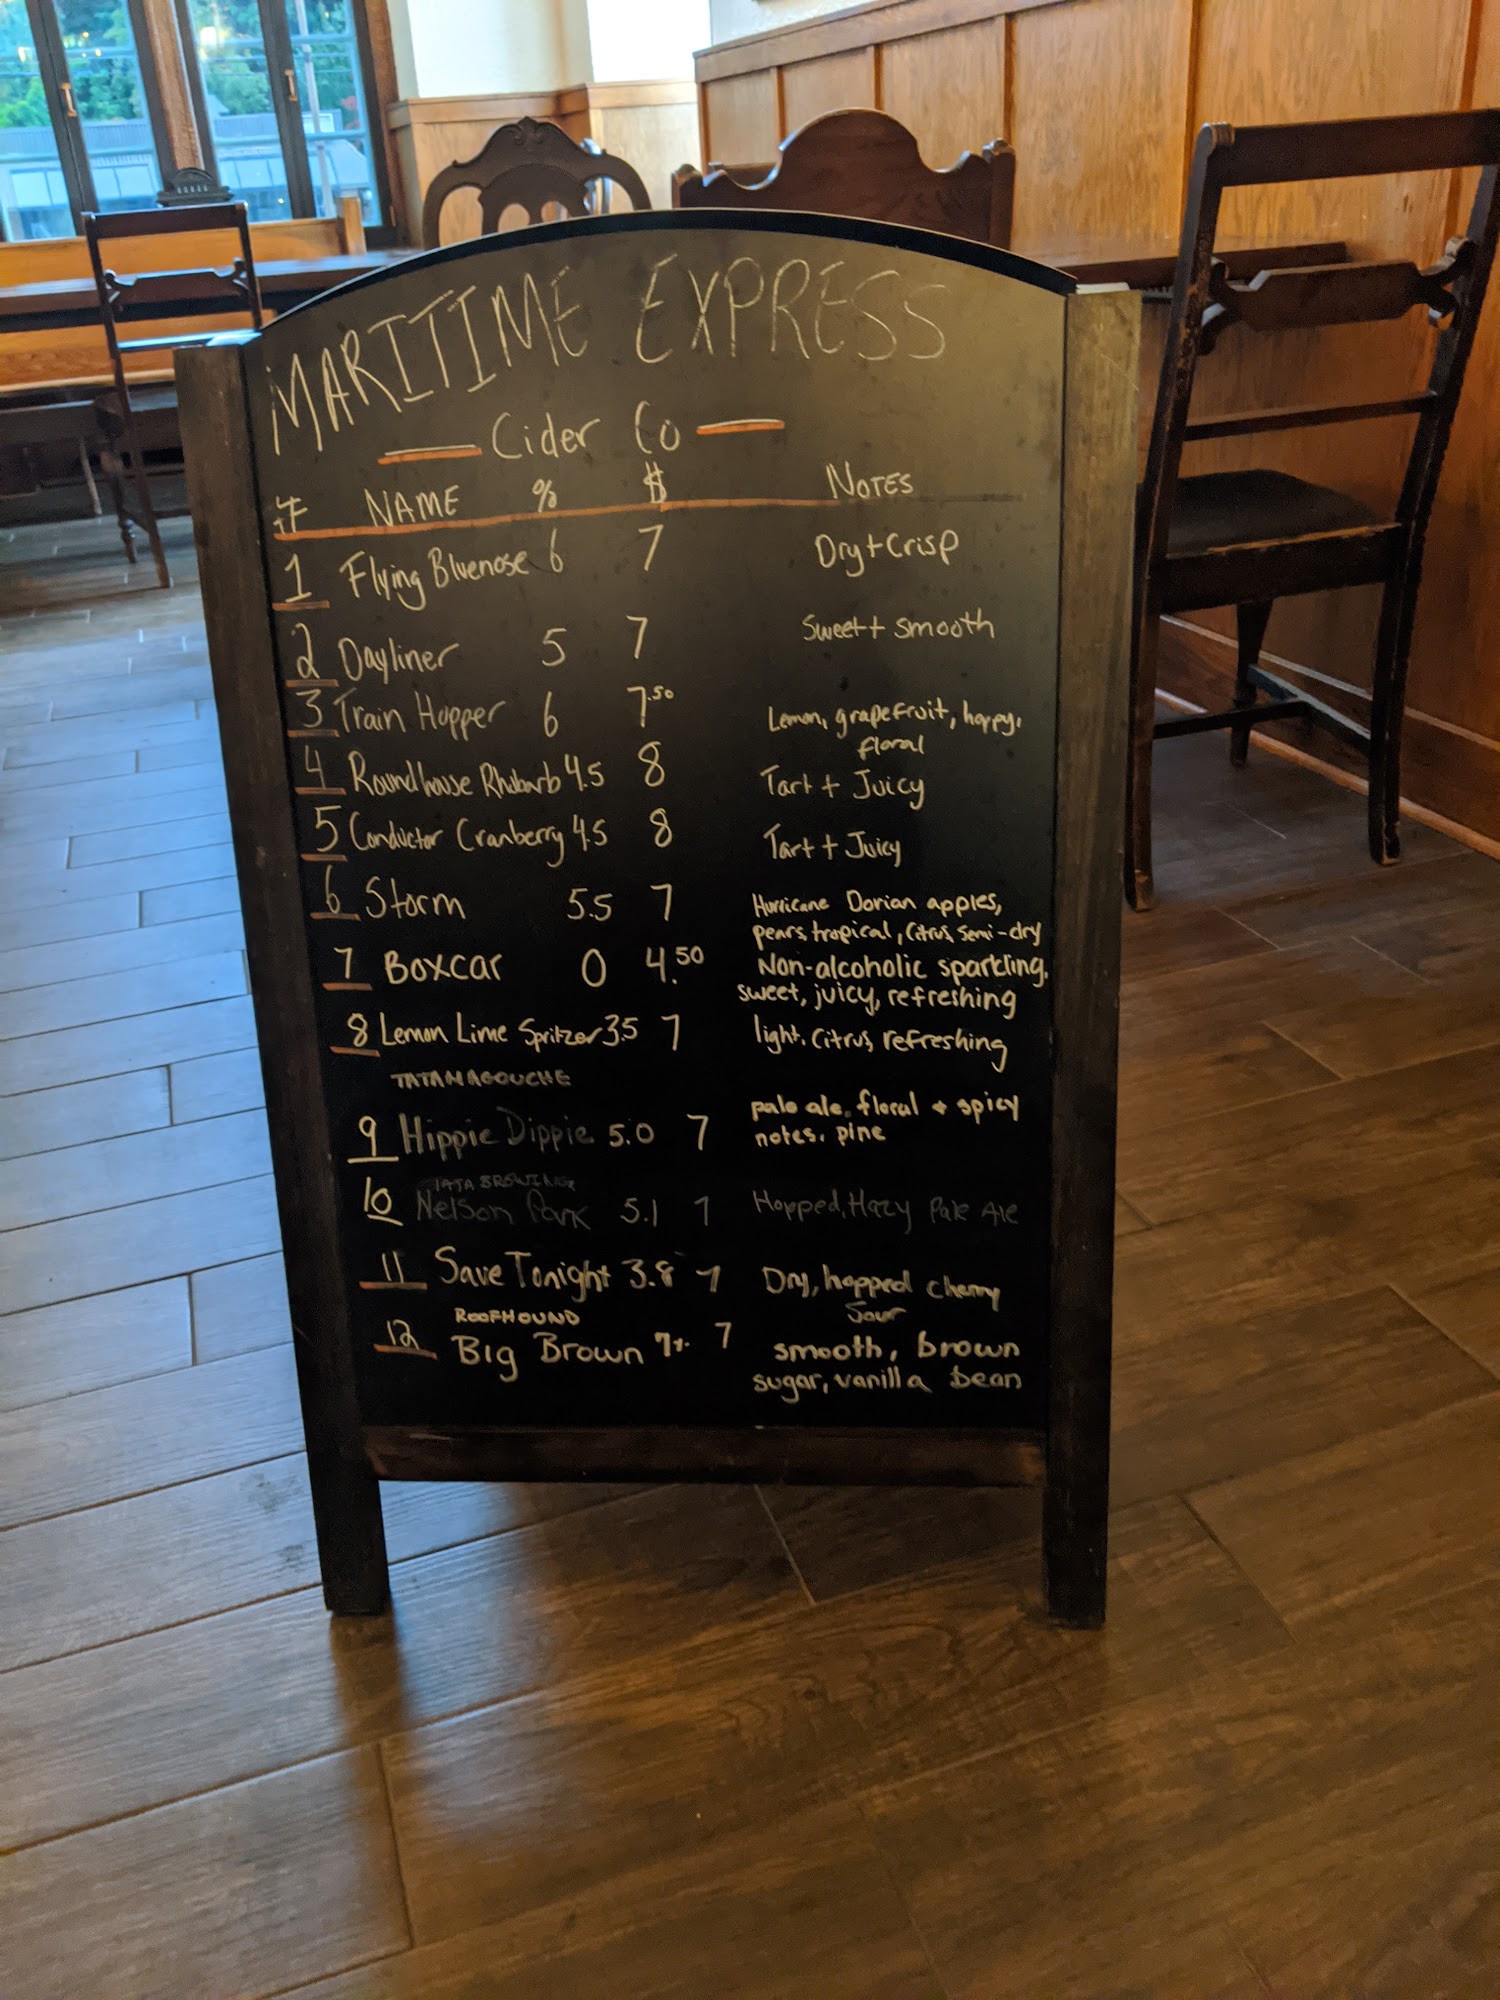 MARITIME EXPRESS
Cider Co
# NAME % $ NOTES
1 Flying Bluenose 6 7 Dry + Crisp
2 Dayliner 5 7 Sweet + smooth
3 Train Hopper 6 7.50 Lemon, grapefruit, hoppy,
floral
4 Roundhouse Rhubarb 4.5 8 Tart + Juicy
5 Conductor Cranberry 4.5 8 Tart + Juicy
6 Storm 5.5 7 Hurricane Dorian apples,
pears, tropical, citrus, semi-dry
7 BOXCAR 0 4.50 Non-alcoholic sparkling,
sweet, juicy, refreshing
8 Lemon Lime Spritzer 3.5 7 light, citrus, refreshing
TATAMAGOUCHE
9 Hippie Dippie 5.0 7 pale ale, floral + spicy
notes, pine
TATA BREWING
10 Nelson Park 5.1 7 Hopped, Hazy Pale Ale
11 Save Tonight 3.8 7 Dry, hopped cherry
Sour
ROOFHOUND
12 Big Brown 7 smooth, brown
sugar, vanilla bean